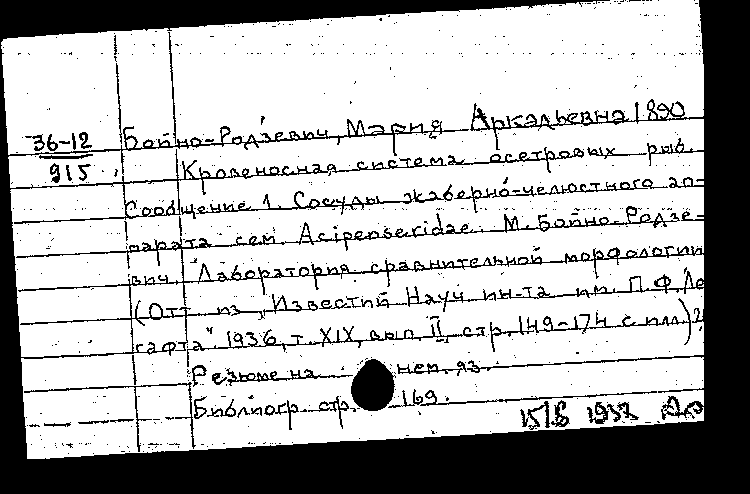 36-12
915
Бойно-Родзевич, Мария Аркадьевна 1890
Кровеносная система осетровых рыб.
Сообщение 1. Сосуды жаберно-челюстного ап-
парата сем. Acipenseridae. М. Бойно-Родзе-
вич. Лаборатория сравнительной морфологии
(Отт. из "Известий Науч. ин-та им. П.Ф. Ле
сгафта". 1936, т. XIX, вып. II, стр. 149-174 с илл.)
Резюме на нем. яз.
Библиогр. стр. 169.
15/8 1937